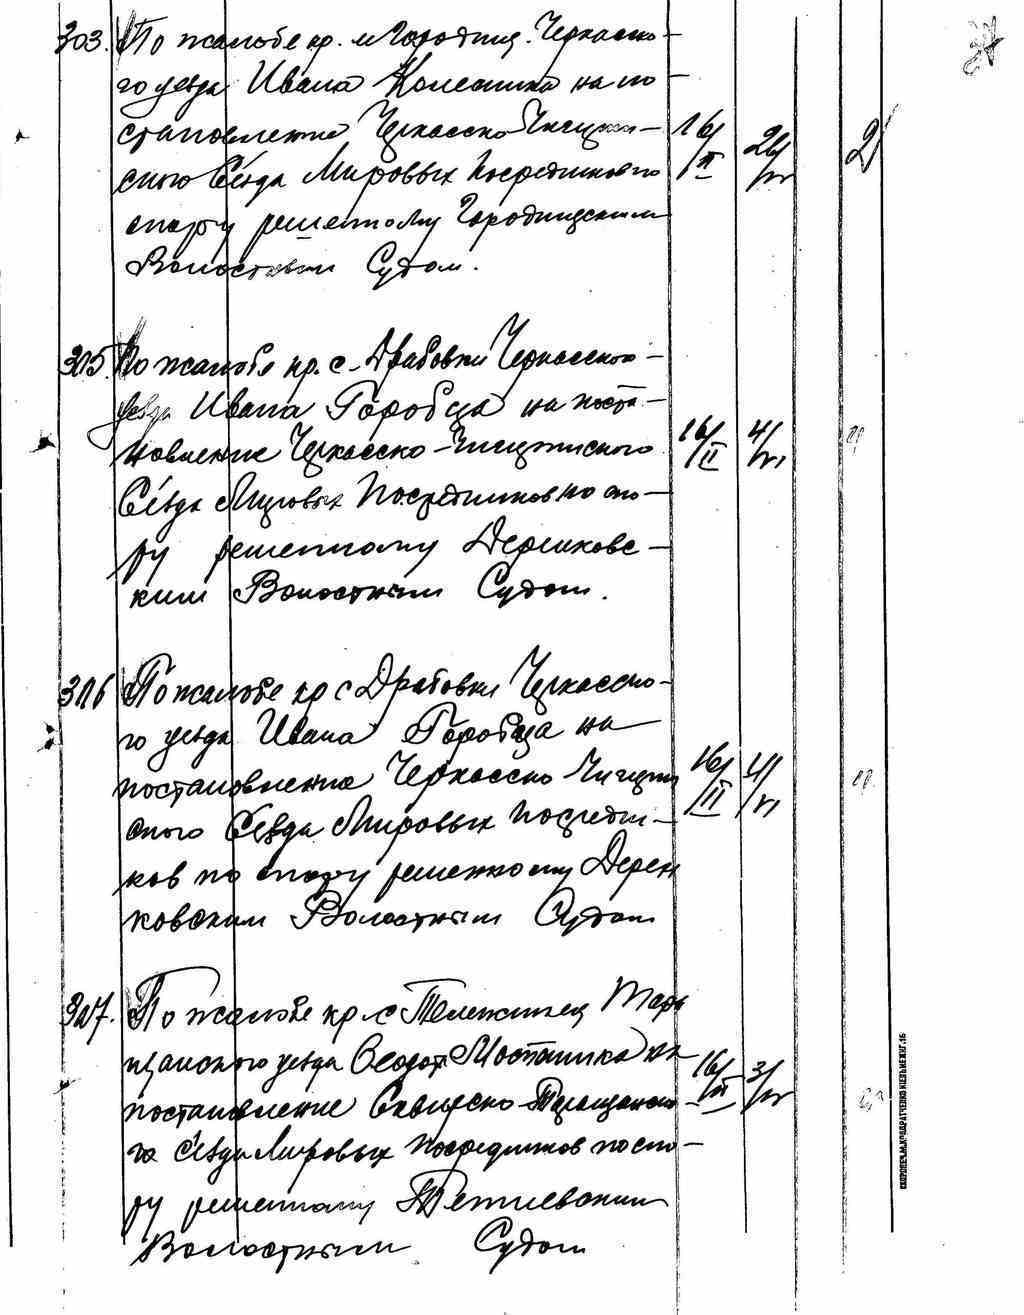 303. По жалобе кр. м Городищ. Черкасско-
го уезда Ивана Колесника на по-
становление Черкасско-Чигирин-
ского Съезда Мировых Посредников по
спору решенному Городищенским
Волостным Судом.
16/II 26/IV 2
315. По жалобе кр. с. Драбовки Черкасского
уезда Ивана Горобца на поста-
новление Черкасско-Чигиринского
Съезда Мировых Посредников по спо-
ру решенному Деренковс-
ким Волостным Судом.
16/II 4/VI
316 По жалобе кр с Драбовки Черкасско-
го уезда Ивана Горобца на
постановление Черкасско Чигирин
ского Съезда Мировых Посредни-
ков по спору решенному Дерен
ковским Волостным Судом
16/II 4/VI
327. По жалобе кр. с Тележинец Тара
щанского уезда Федота на
постановление Сквирско-Таращанско-
го Съезда Мировых Посредников по спо-
ру решенному Тетиевским
Волостным Судом
16/II 3/IV